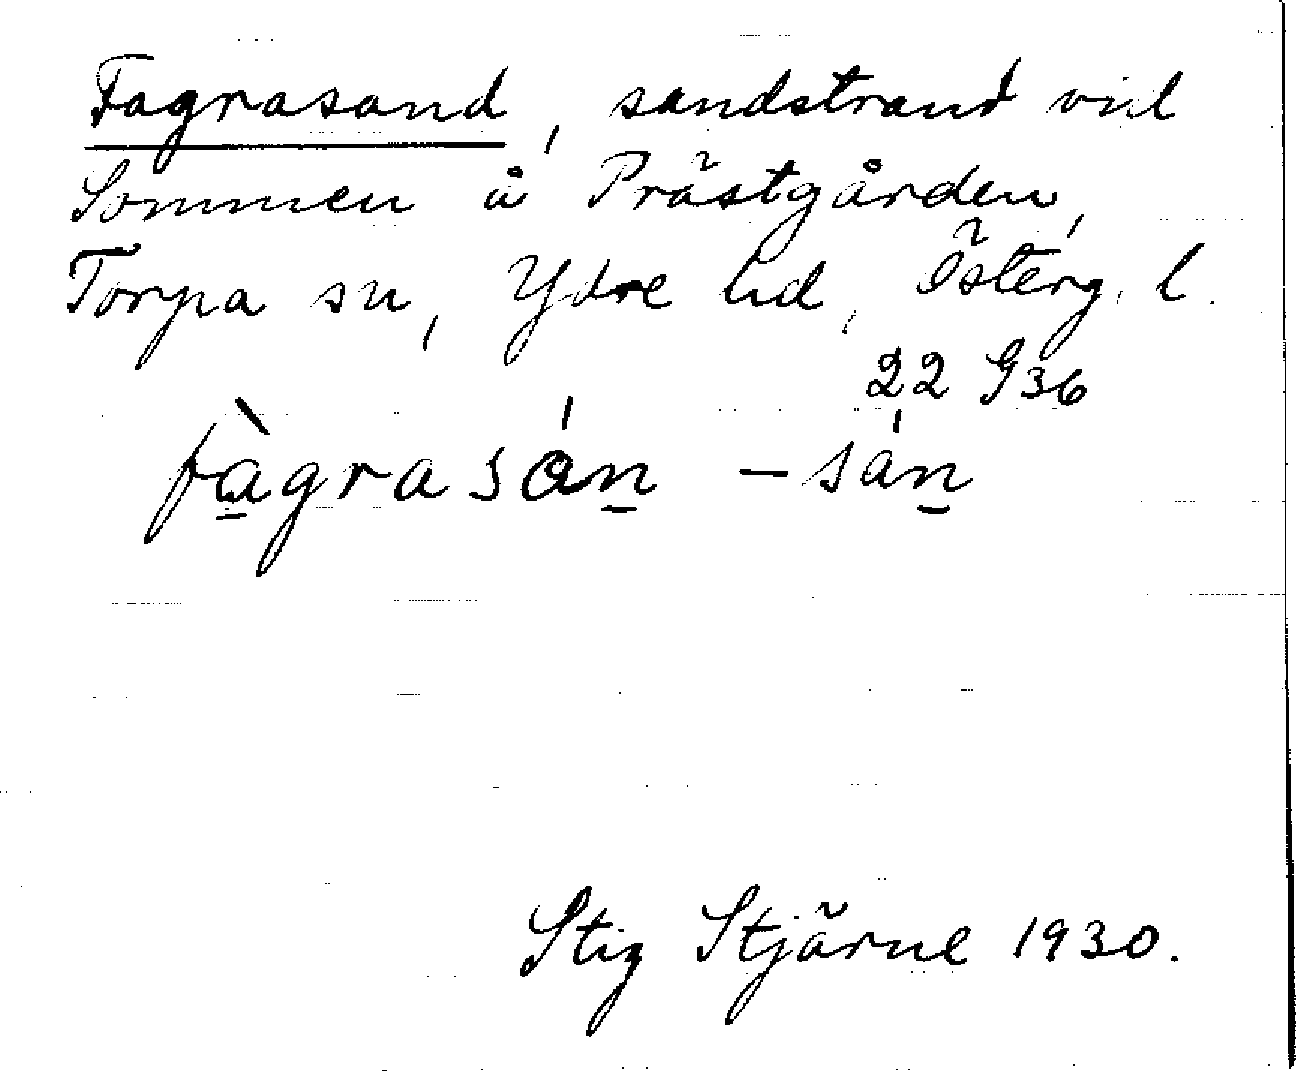 Fagrasand, sandstrand vid
Sommen å Prästgården,
Torpa sn, Ydre hd, Österg. l.
22 G36
fà̲grasán̲ – sán̲
Stig Stjärne 1930.